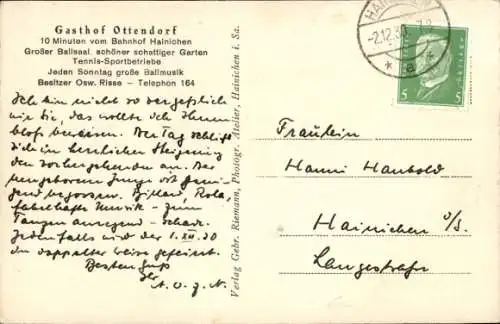 Gasthof Ottendorf
10 Minuten vom Bahnhof Hainichen
Großer Ballsaal, schöner schattiger Garten
Tennis-Sportbetriebe
Jeden Sonntag große Ballmusik
Besitzer Osw. Risse – Telephon 164
Ich bin nicht so vergeßlich
wie Sie, das wollte ich Ihnen
bloß beweisen. Der Tag schließt
sich in herrlicher Steigerung
den vorhergehenden an. Der
neugeborene Junge ist
begossen. Billard,
fabelhafte Musik – zum
Tanzen anregend – schade.
Jedenfalls wird der 1.XII.30
in doppelter Weise gefeiert.
Besten Gruß
Ihr
A. O. J. N.
Verlag Gebr. Riemann, Photogr. Atelier, Hainichen i. Sa.
-2.12.30
5 5
Fräulein
Hanni Haubold
Hainichen i/S.
Langestraße